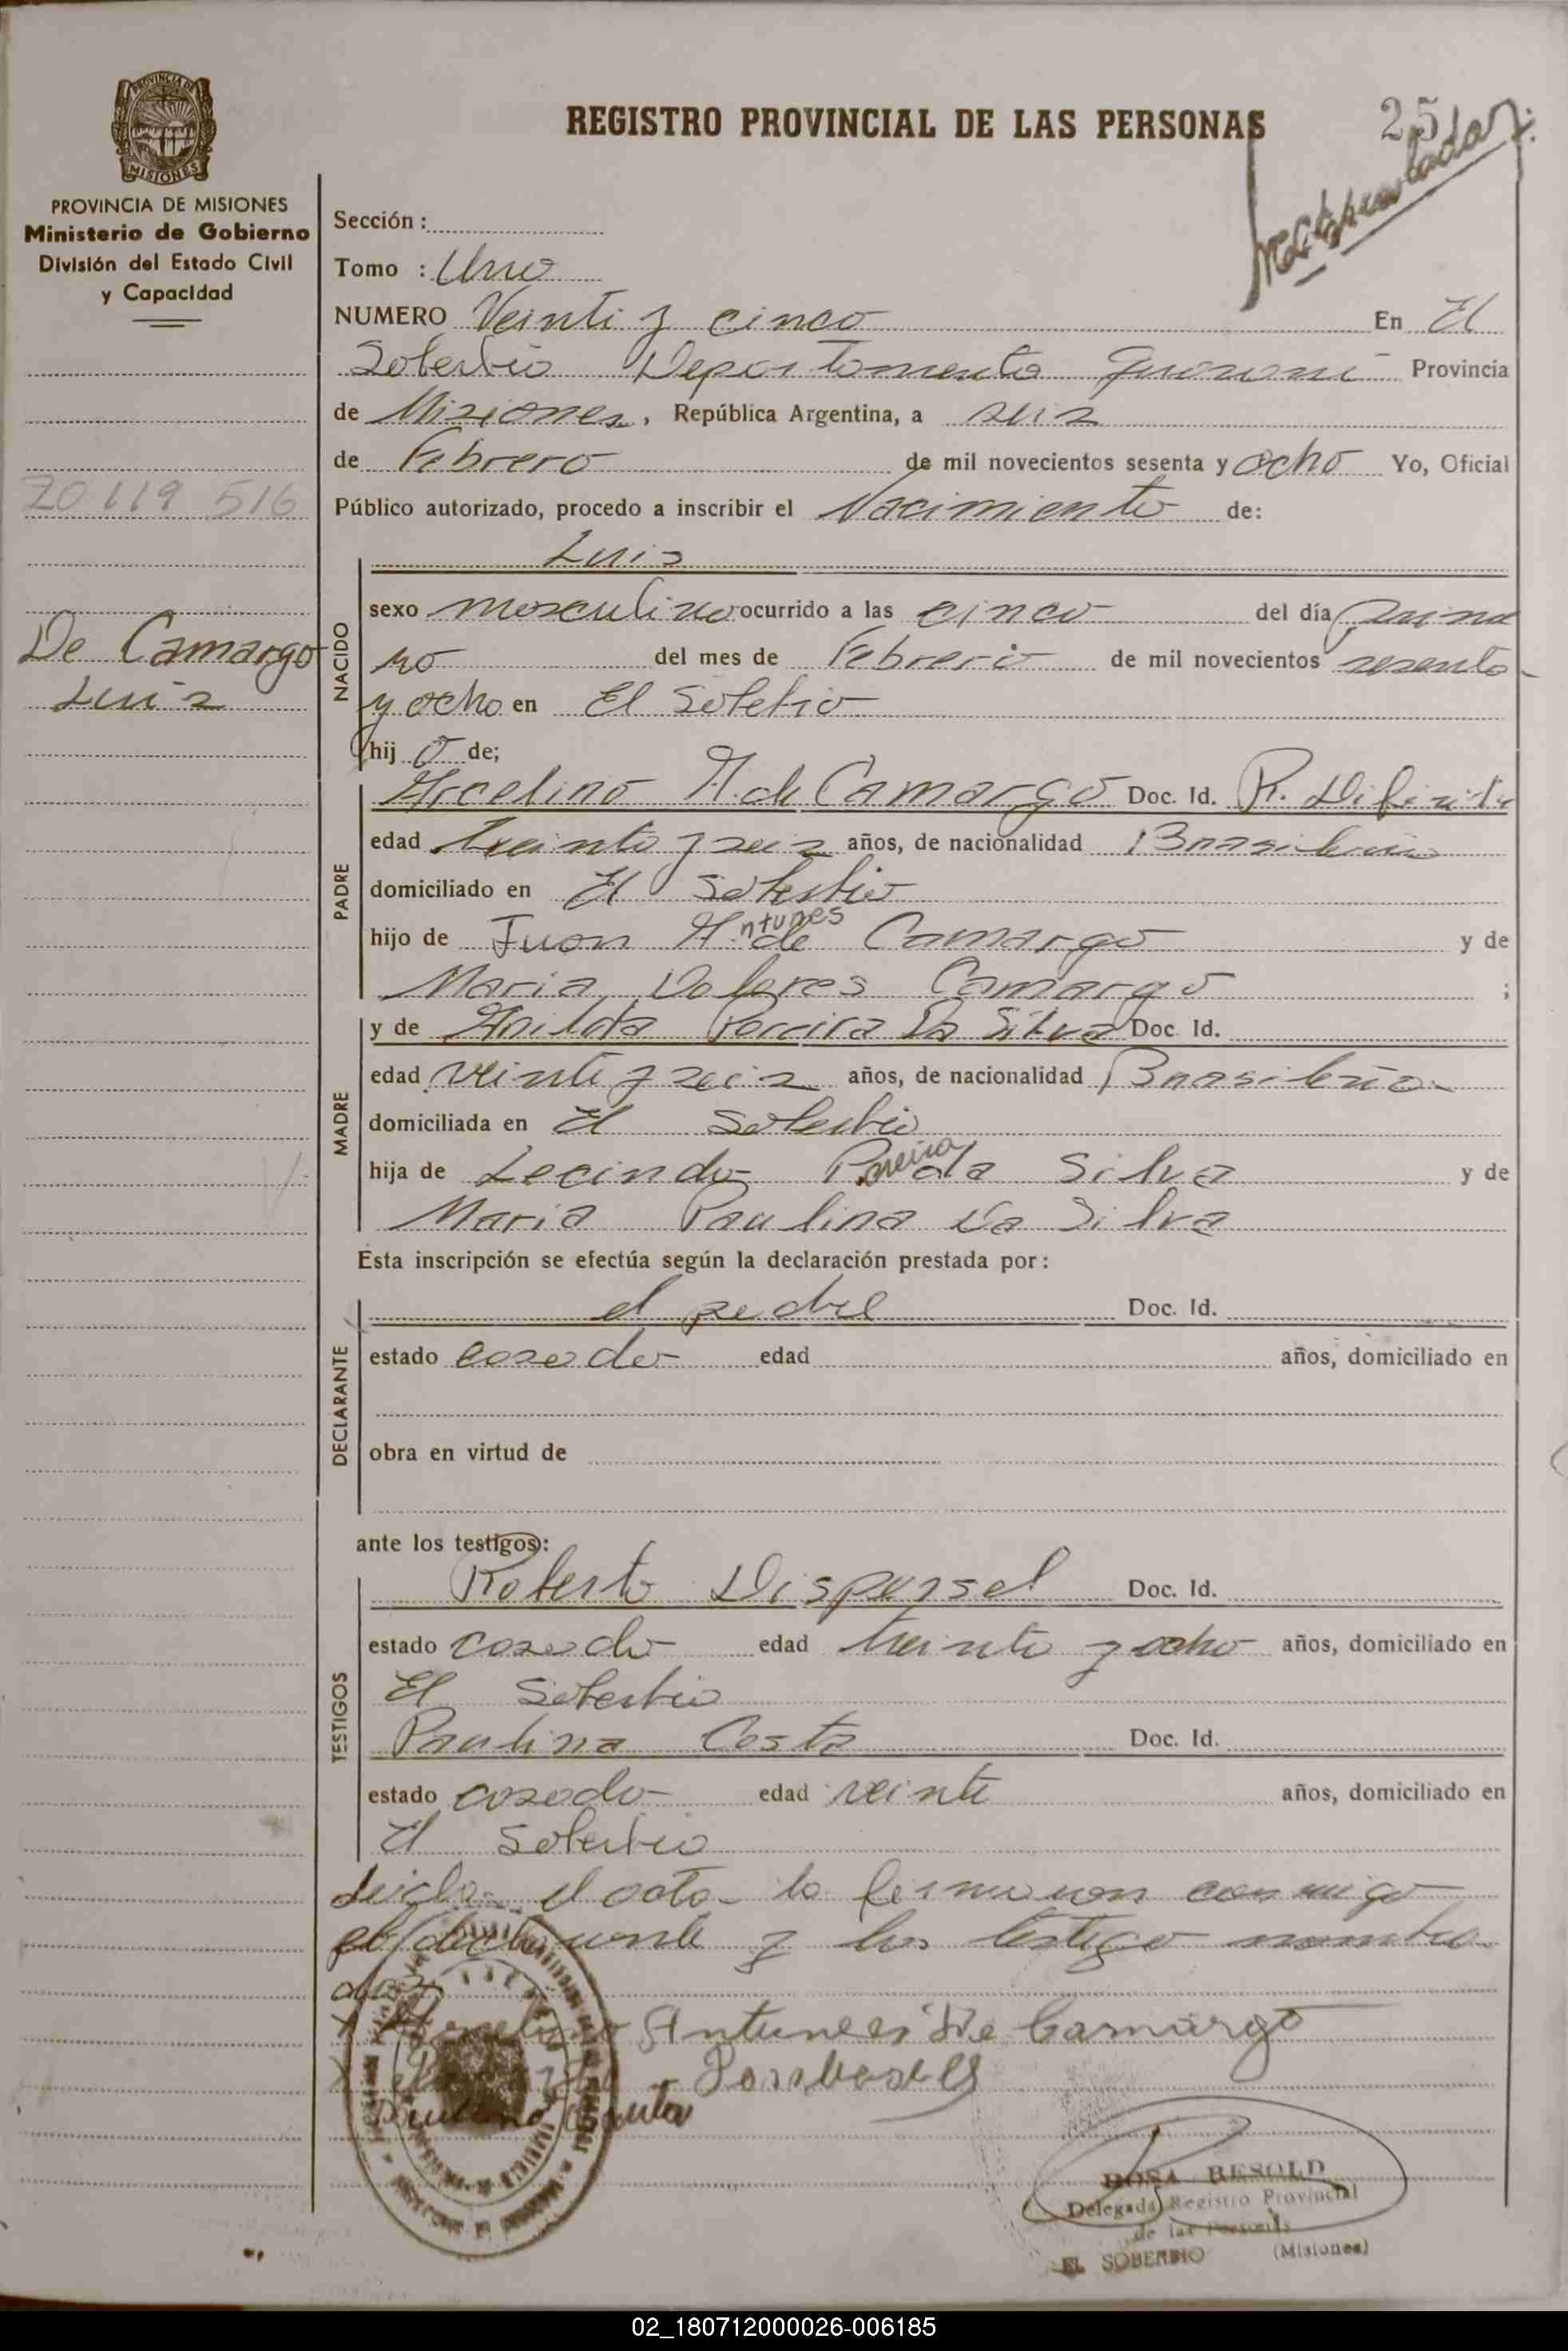 REGISTRO PROVINCIAL DE LAS PERSONAS
25
PROVINCIA DE MISIONES
Ministerio de Gobierno
División del Estado Civil
y Capacidad
20 119 516
De Camargo
Luis
Sección :
Tomo : Uno
NUMERO Veinti y cinco En El
Soberbio Departamento Guarani Provincia
de Misiones, República Argentina, a seis
de Febrero de mil novecientos sesenta y ocho Yo, Oficial
Público autorizado, procedo a inscribir el Nacimiento de:
Luis
NACIDO
sexo masculino ocurrido a las cinco del día prime
ro del mes de Febrero de mil novecientos sesenta
y ocho en El Soberbio
hij o de;
PADRE
Arcelino A. de Camargo Doc. Id.
edad treinta y seis años, de nacionalidad Brasileña
domiciliado en El Soberbio
hijo de Juan Antunes de Camargo y de
Maria Dolores Camargo ;
MADRE
y de Pereira Da Silva Doc. Id.
edad veinti y seis años, de nacionalidad Brasileña
domiciliada en El Soberbio
hija de Lecindo Pereira da Silva y de
Maria Paulina Da Silva
Esta inscripción se efectúa según la declaración prestada por:
DECLARANTE
el padre Doc. Id.
estado casado edad años, domiciliado en
obra en virtud de
ante los testigos:
TESTIGOS
Roberto Doc. Id.
estado casado edad treinta y ocho años, domiciliado en
El Soberbio
Paulina Costa Doc. Id.
estado casado edad veinte años, domiciliado en
El Soberbio
el acta la firmaron conmigo
el declarante y los testigo nombra
dos
Antunes De Camargo
ROSA BESOLD
Delegada Registro Provincial
de las Personas
EL SOBERBIO (Misiones)
02_180712000026-006185